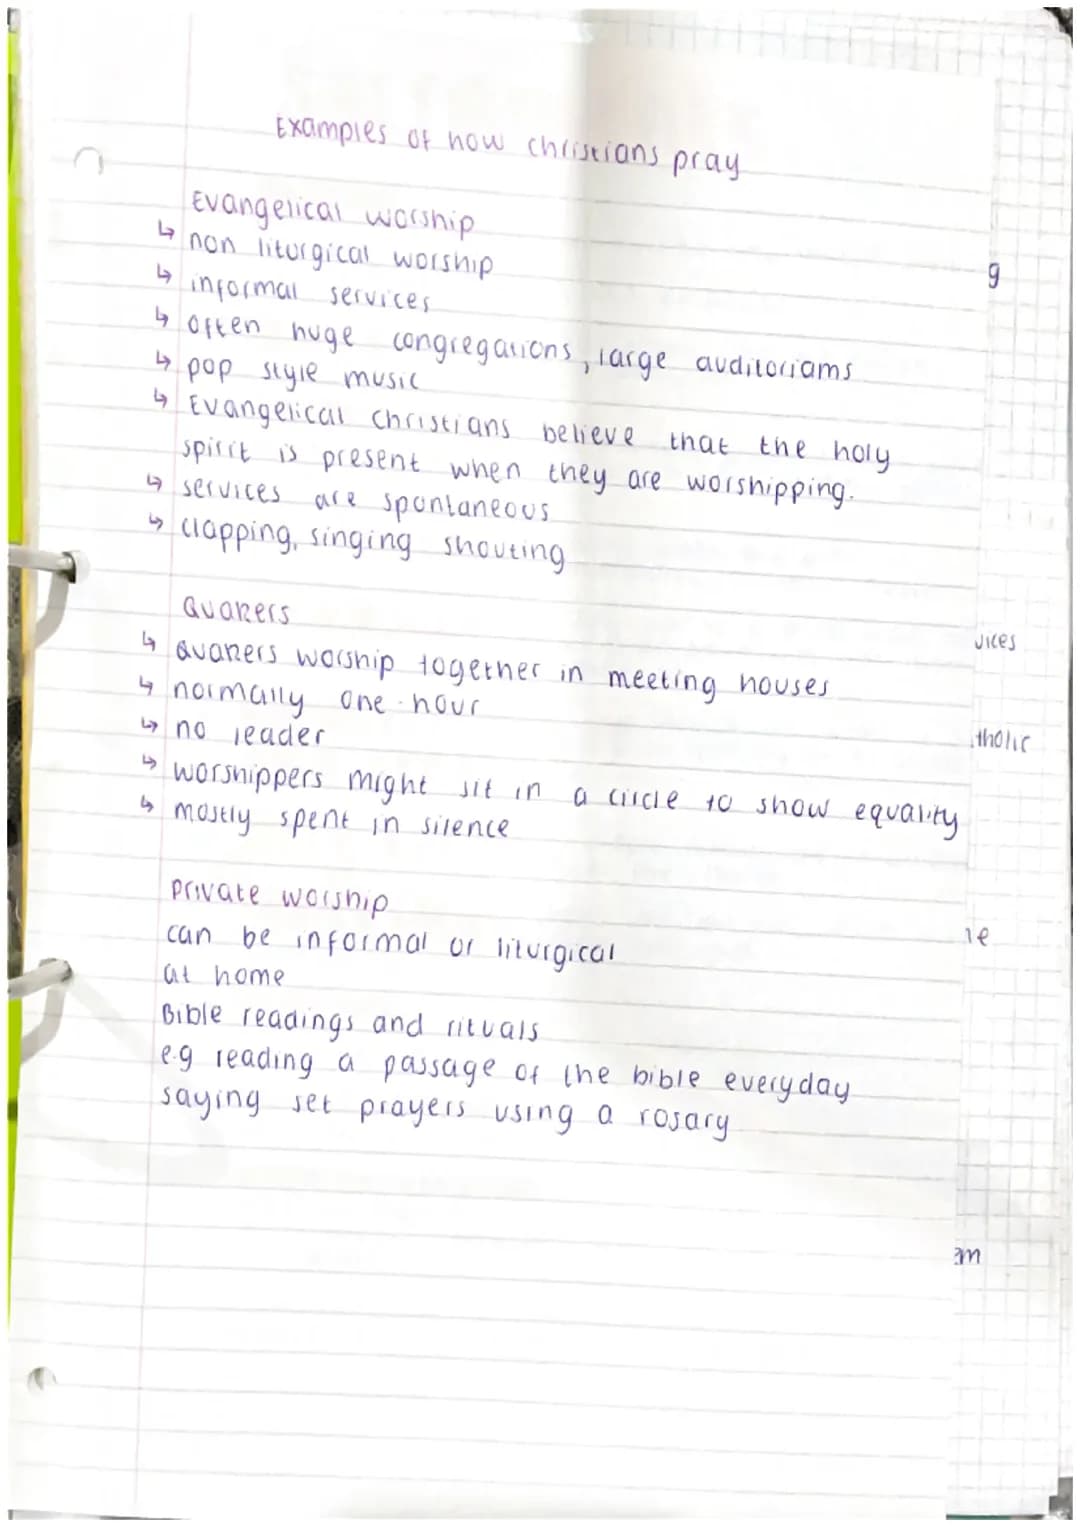 Examples of how christians pray
Evangelical worship
↳ non liturgical worship
↳ informal services
↳ often huge congregations, large auditoriams
↳ pop style music
↳ Evangelical christians believe that the holy
spirit is present when they are worshipping.
↳ services are spontaneous
↳ clapping, singing shouting
Quakers
↳ Quakers worship together in meeting houses
↳ normally one hour
↳ no leader
↳ worshippers might sit in a circle to show equality
↳ mostly spent in silence
private worship
can be informal or liturgical
at home
Bible readings and rituals
e.g reading a passage of the bible everyday
saying set prayers using a rosary
g
vices
tholic
em